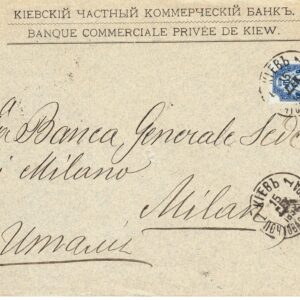 КІЕВСКІЙ ЧАСТНЫЙ КОММЕРЧЕСКІЙ БАНКЪ.
BANQUE COMMERCIALE PRIVÉE DE KIEW.
КІЕВЪ
Banca Generale Sede
Milano
КІЕВЪ
Milan
Италія